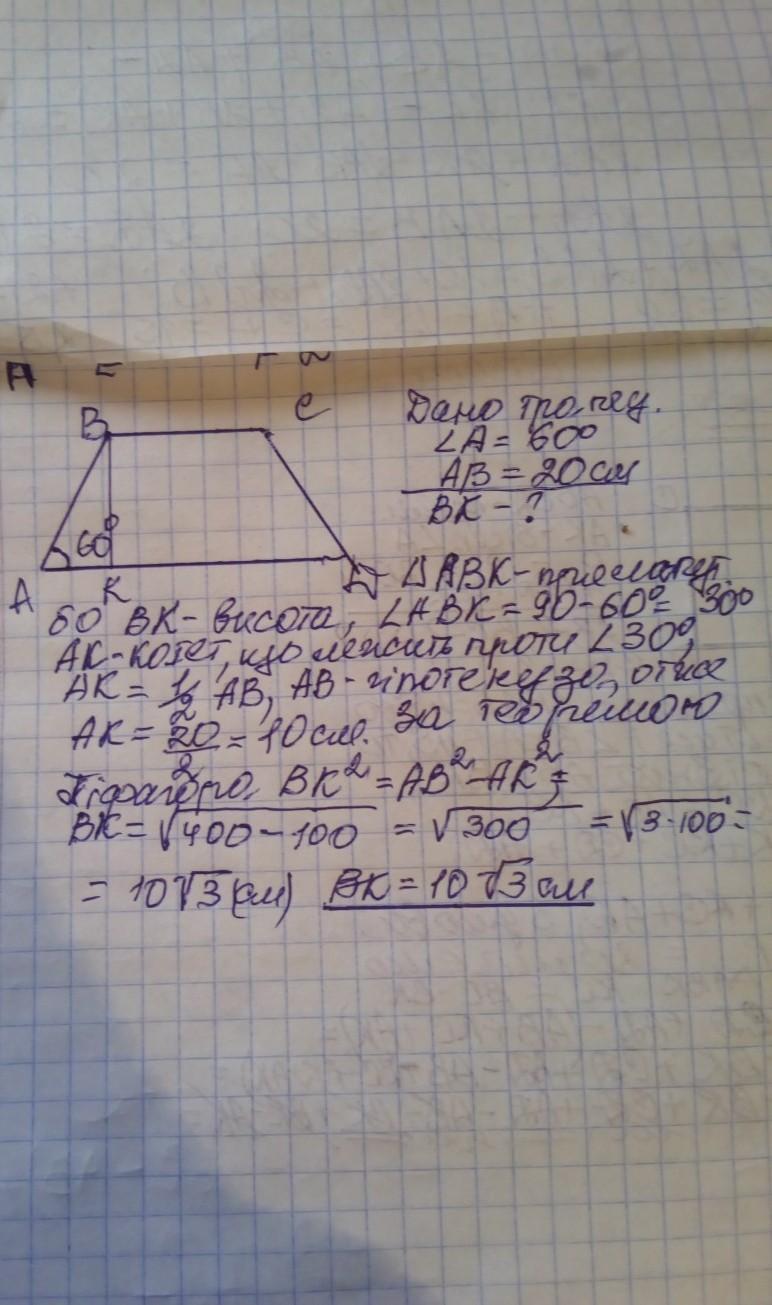 B
C
60°
A
K
D
Дано трапец.
∠A = 60°
AB = 20 см
BK - ?
△ABK - прямокут.
бо BK - висота, ∠ABK = 90 - 60° = 30°
AK - катет, що лежить проти ∠30°,
AK = 1/2 AB, AB - гіпотенуза, отже
AK = 20/2 = 10 см. За теоремою
Піфагора BK² = AB² - AK²;
BK = √400 - 100 = √300 = √3·100 =
= 10√3 (см) BK = 10√3 см